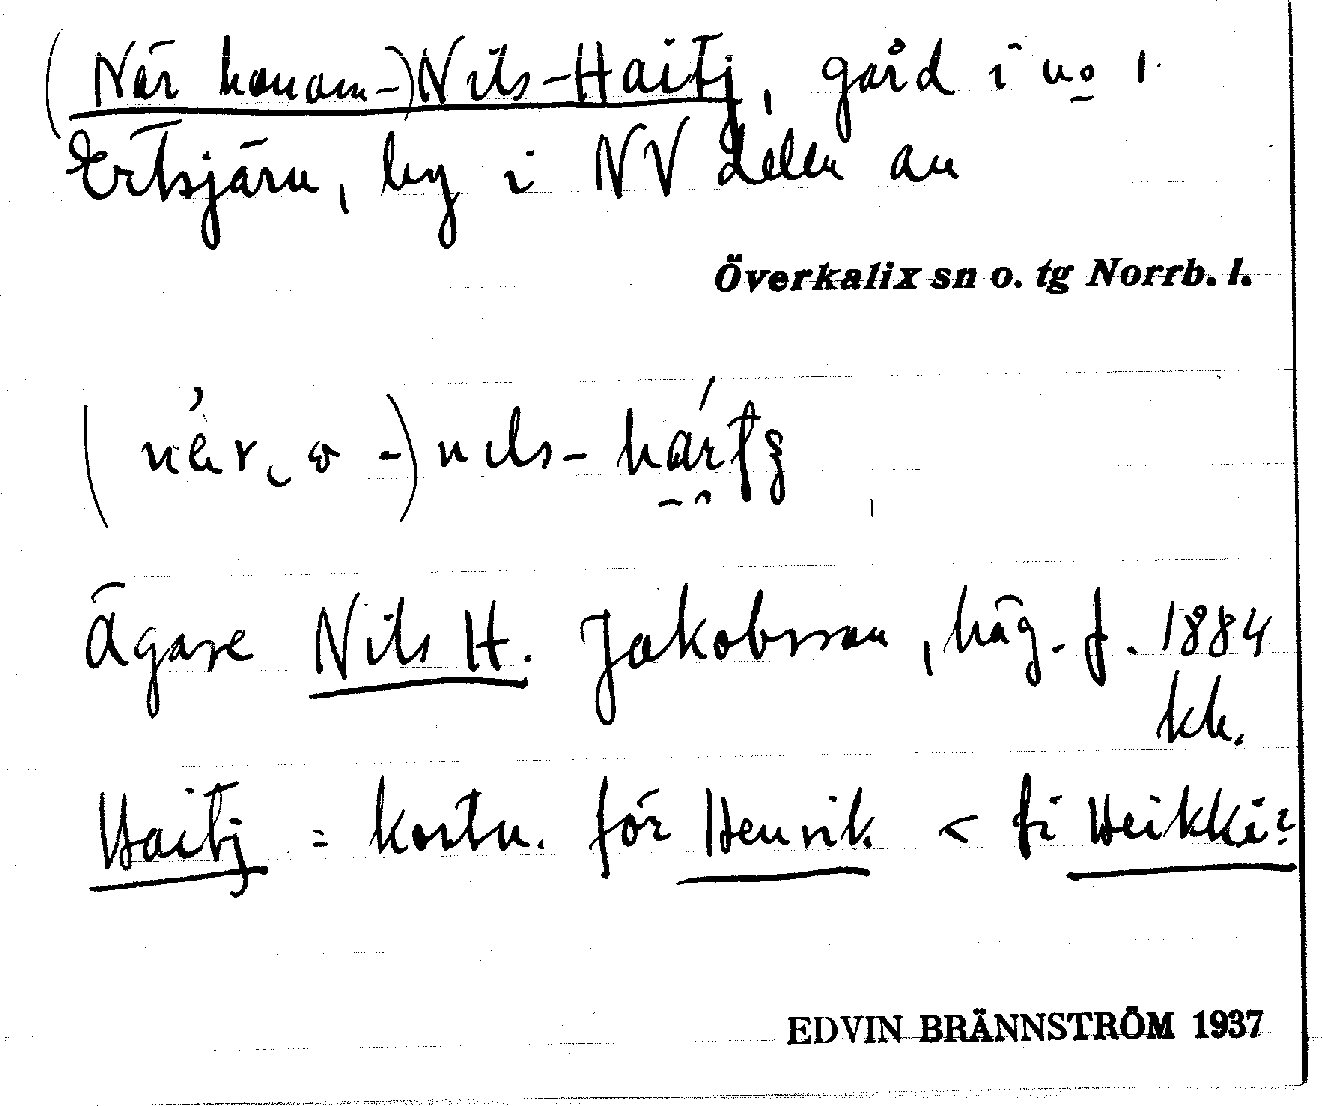 (När honom-)Nils-Haitj, gård i no 1
Ertsjärn, by i NV delen av
Överkalix sn o. tg Norrb. l.
nils-
Ägare Nils H. Jakobsson, häg. f. 1884
kk.
Haitj = kortn. för Henrik < fi Heikki?
EDVIN BRÄNNSTRÖM 1937